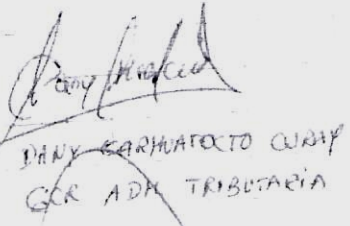 DANY CARHUATOCTO CURAY
GCR ADM TRIBUTARIA